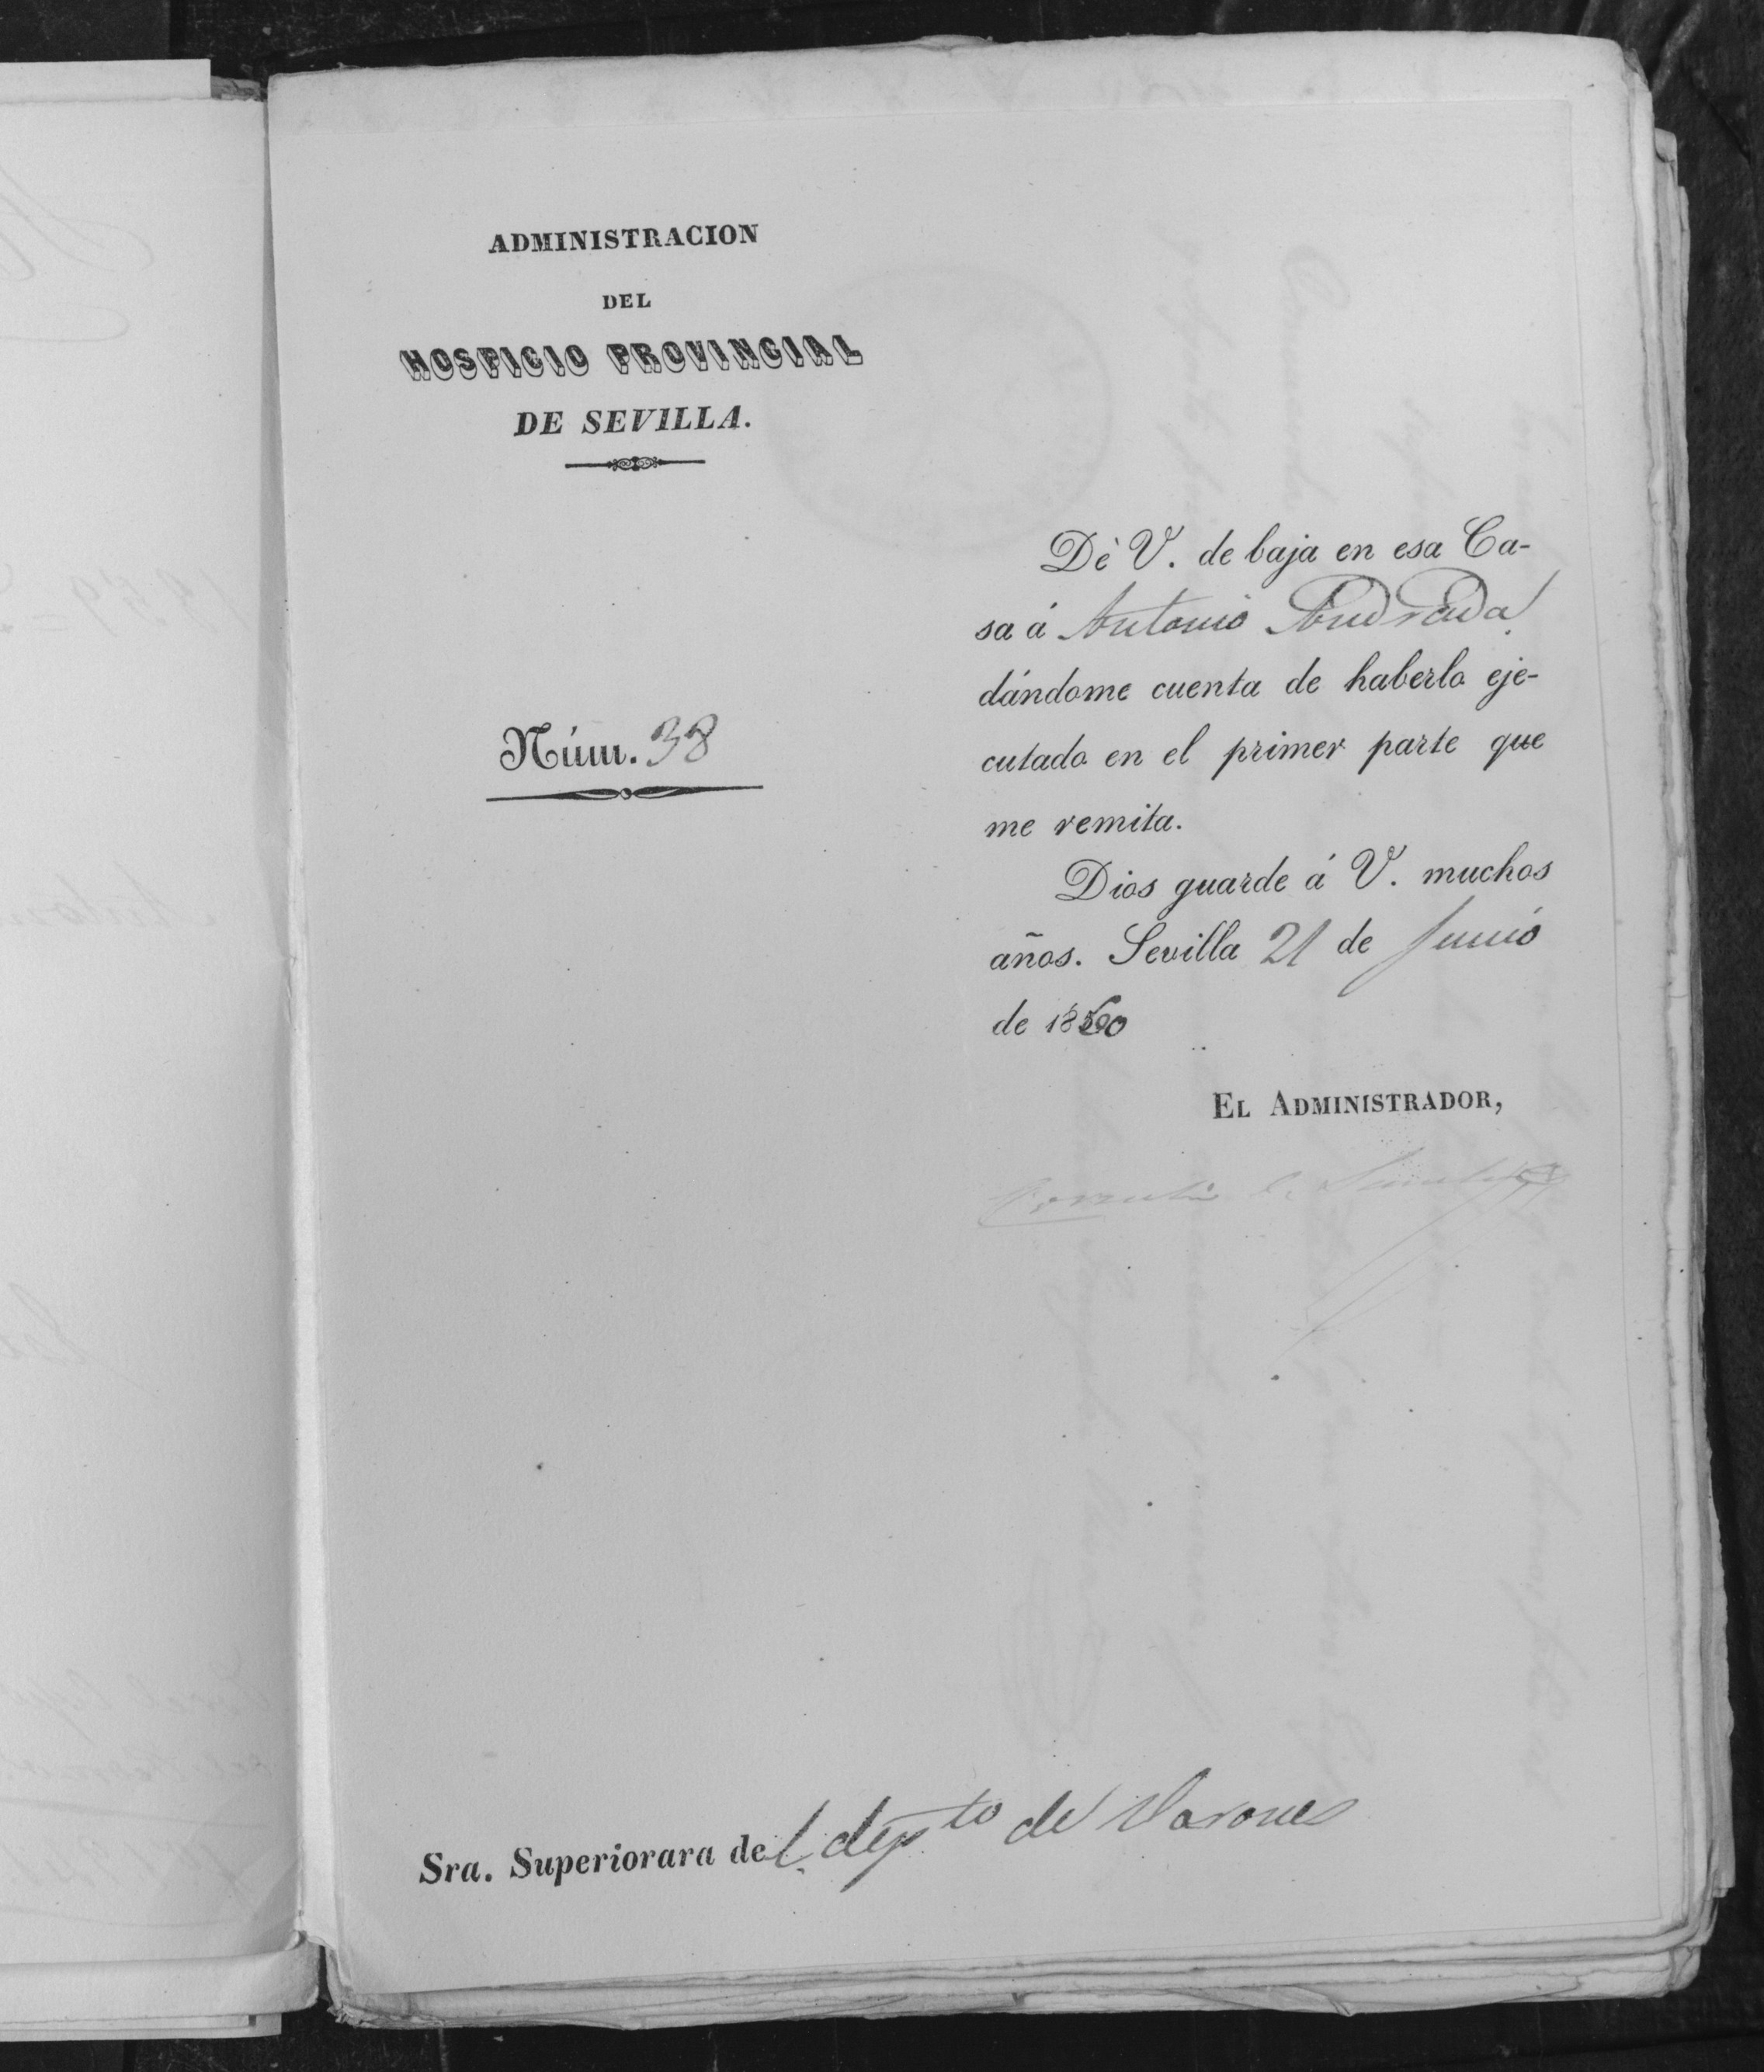 ADMINISTRACION
DEL
HOSPICIO PROVINCIAL
DE SEVILLA.
Dè V. de baja en esa Ca-
sa á Antonio Andrada
dándome cuenta de haberlo eje-
cutado en el primer parte que
me remita.
Núm. 38
Dios guarde á V. muchos
años. Sevilla 21 de Junio
de 1860
EL ADMINISTRADOR,
Sra. Superiorara del depto de Varones